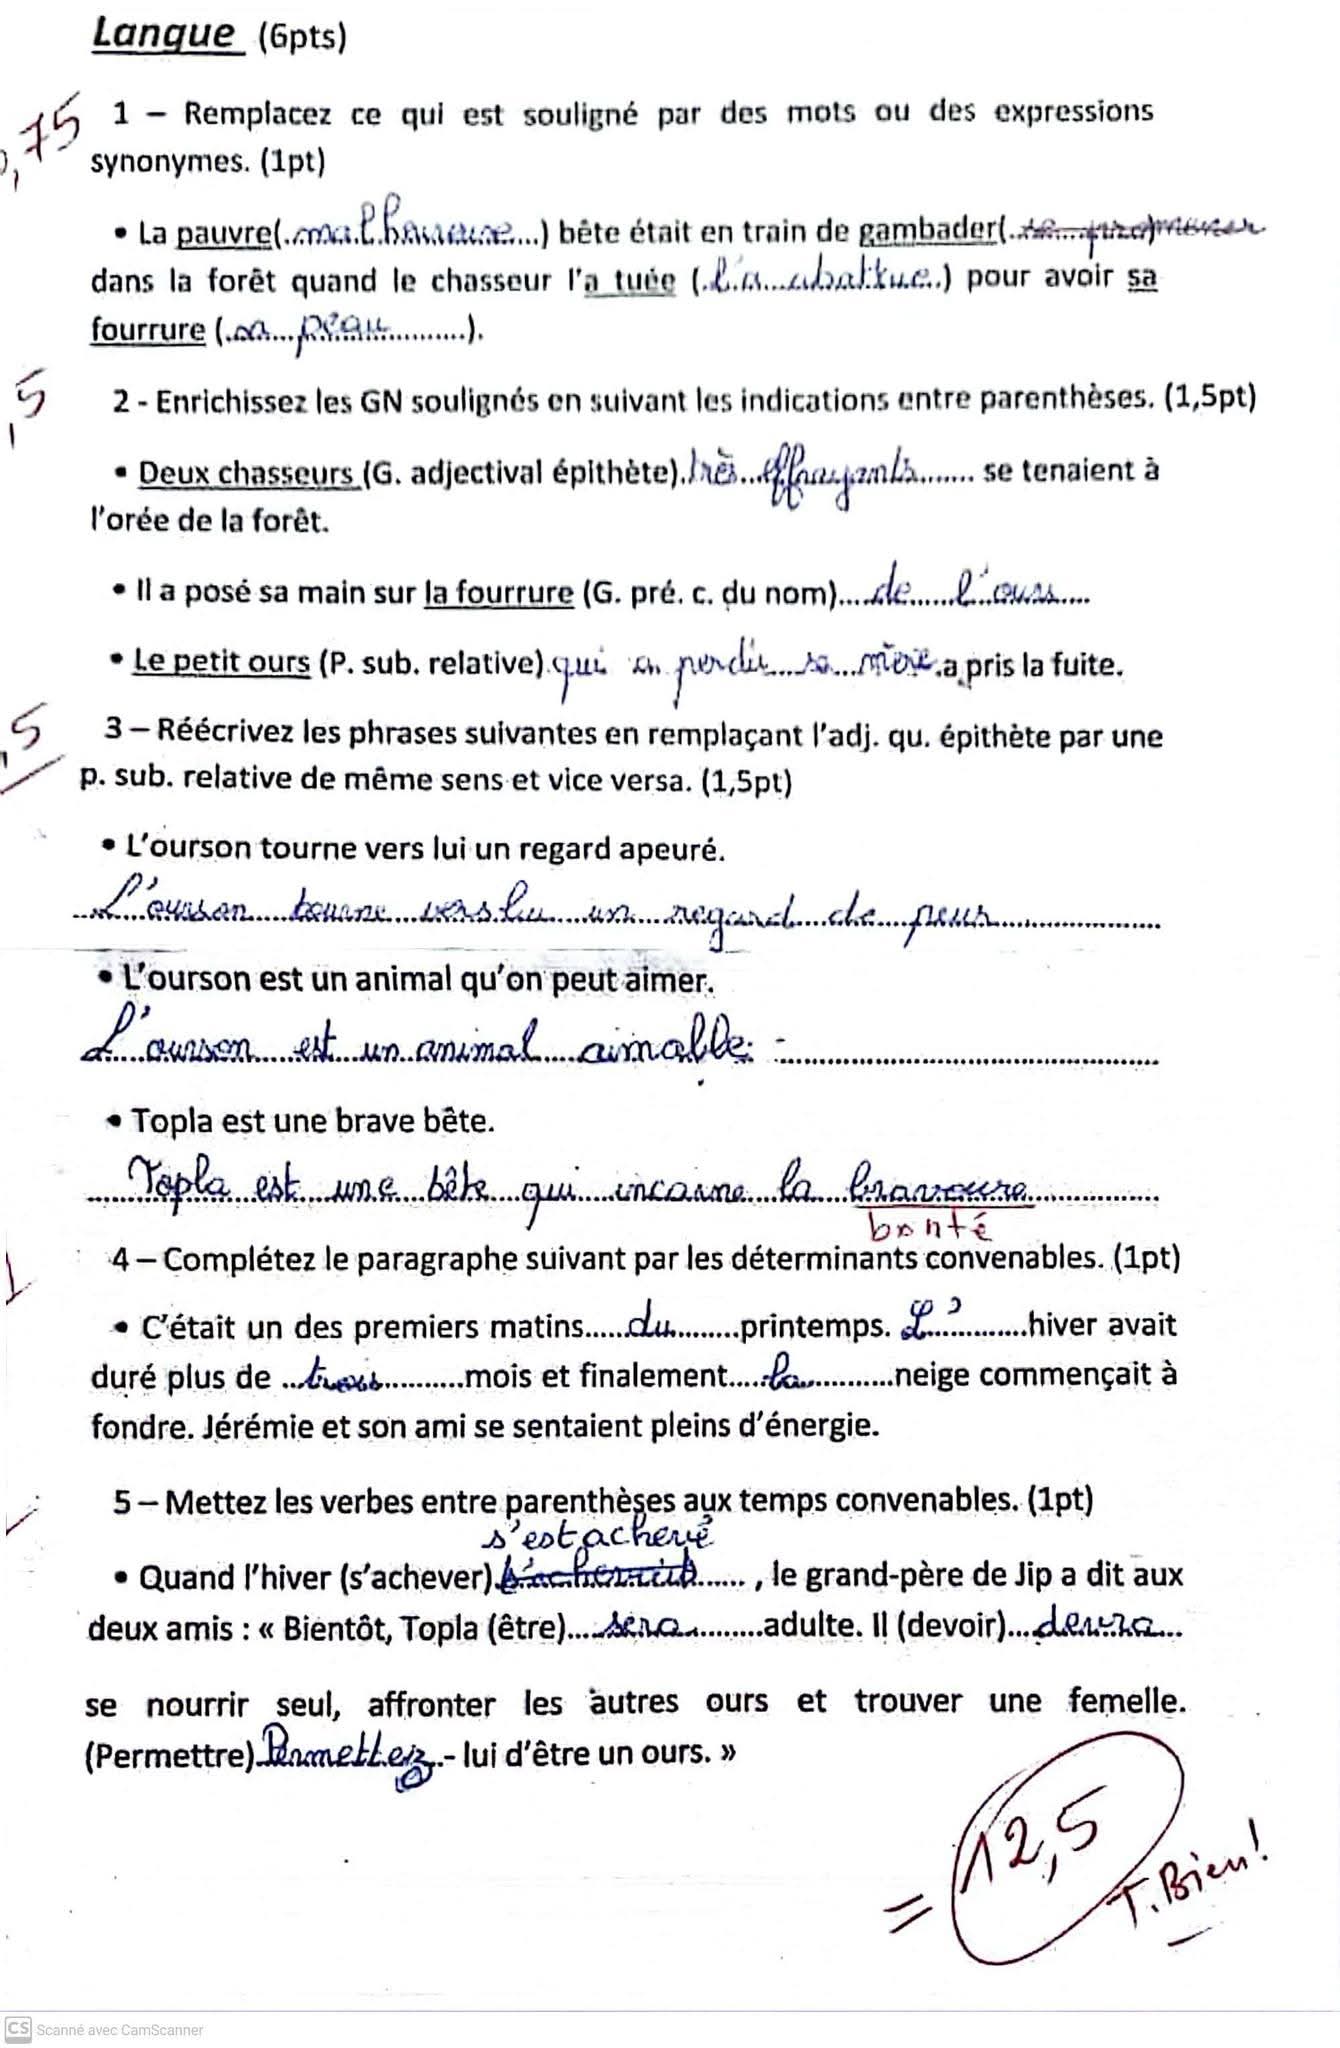 Langue (6pts)
,75
1 – Remplacez ce qui est souligné par des mots ou des expressions
synonymes. (1pt)
• La pauvre(.malheureuse...) bête était en train de gambader(..se promener
dans la forêt quand le chasseur l'a tuée (.l'a abattue.) pour avoir sa
fourrure (.sa peau............).
,5
2 - Enrichissez les GN soulignés en suivant les indications entre parenthèses. (1,5pt)
• Deux chasseurs (G. adjectival épithète).très effrayants....... se tenaient à
l'orée de la forêt.
• Il a posé sa main sur la fourrure (G. pré. c. du nom)....de......l'ours....
• Le petit ours (P. sub. relative).qui a perdu sa mère.a pris la fuite.
,5
3 – Réécrivez les phrases suivantes en remplaçant l'adj. qu. épithète par une
p. sub. relative de même sens et vice versa. (1,5pt)
• L'ourson tourne vers lui un regard apeuré.
L'ourson tourne vers lu un regard de peur
• L'ourson est un animal qu'on peut aimer.
L'ourson est un animal aimable.
• Topla est une brave bête.
Topla est une bête qui incarne la bravoure
bonté
1
4 – Complétez le paragraphe suivant par les déterminants convenables. (1pt)
• C'était un des premiers matins......du.........printemps. L'............hiver avait
duré plus de ...trois............mois et finalement.....la...........neige commençait à
fondre. Jérémie et son ami se sentaient pleins d'énergie.
5 – Mettez les verbes entre parenthèses aux temps convenables. (1pt)
s'est achevé
• Quand l'hiver (s'achever)............ , le grand-père de Jip a dit aux
deux amis : « Bientôt, Topla (être)....sera..........adulte. Il (devoir)....devra...
se nourrir seul, affronter les autres ours et trouver une femelle.
(Permettre).Permettez.- lui d'être un ours. »
= 12,5
T. Bien!
CS Scanné avec CamScanner